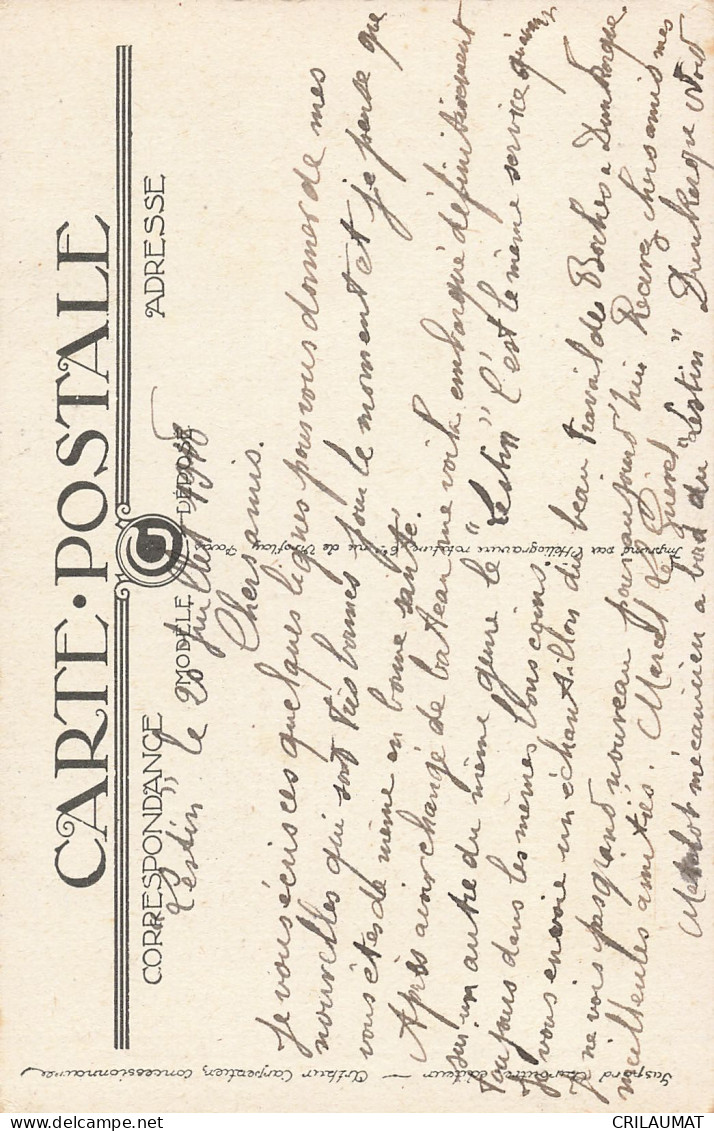 CARTE · POSTALE
CORRESPONDANCE
MODÈLE DÉPOSÉ
ADRESSE
"Lestin" le 20 juillet
Chers amis.
Je vous écris ces quelques lignes pour vous donner de mes
nouvelles qui sont très bonnes pour le moment et je pense que
vous êtes de même en bonne santé.
Après avoir changé de bateau me voilà embarqué définitivement
sur un autre du même genre le "Lestin" c'est le même service
toujours dans les mêmes coins
Je vous envoie un échantillon du beau travail des Boches à Dunkerque
je ne vois pas grand nouveau pour aujourd'hui Recevez chers amis mes
meilleures amitiés. Marcel
Matelot mécanicien a bord du "Lestin" Dunkerque Nord
Imprimé par l'Héliogravure rotative, rue de Viroflay, Paris
Gaspard éditeur — Arthur Carpentier, concessionnaire
CRILAUMAT